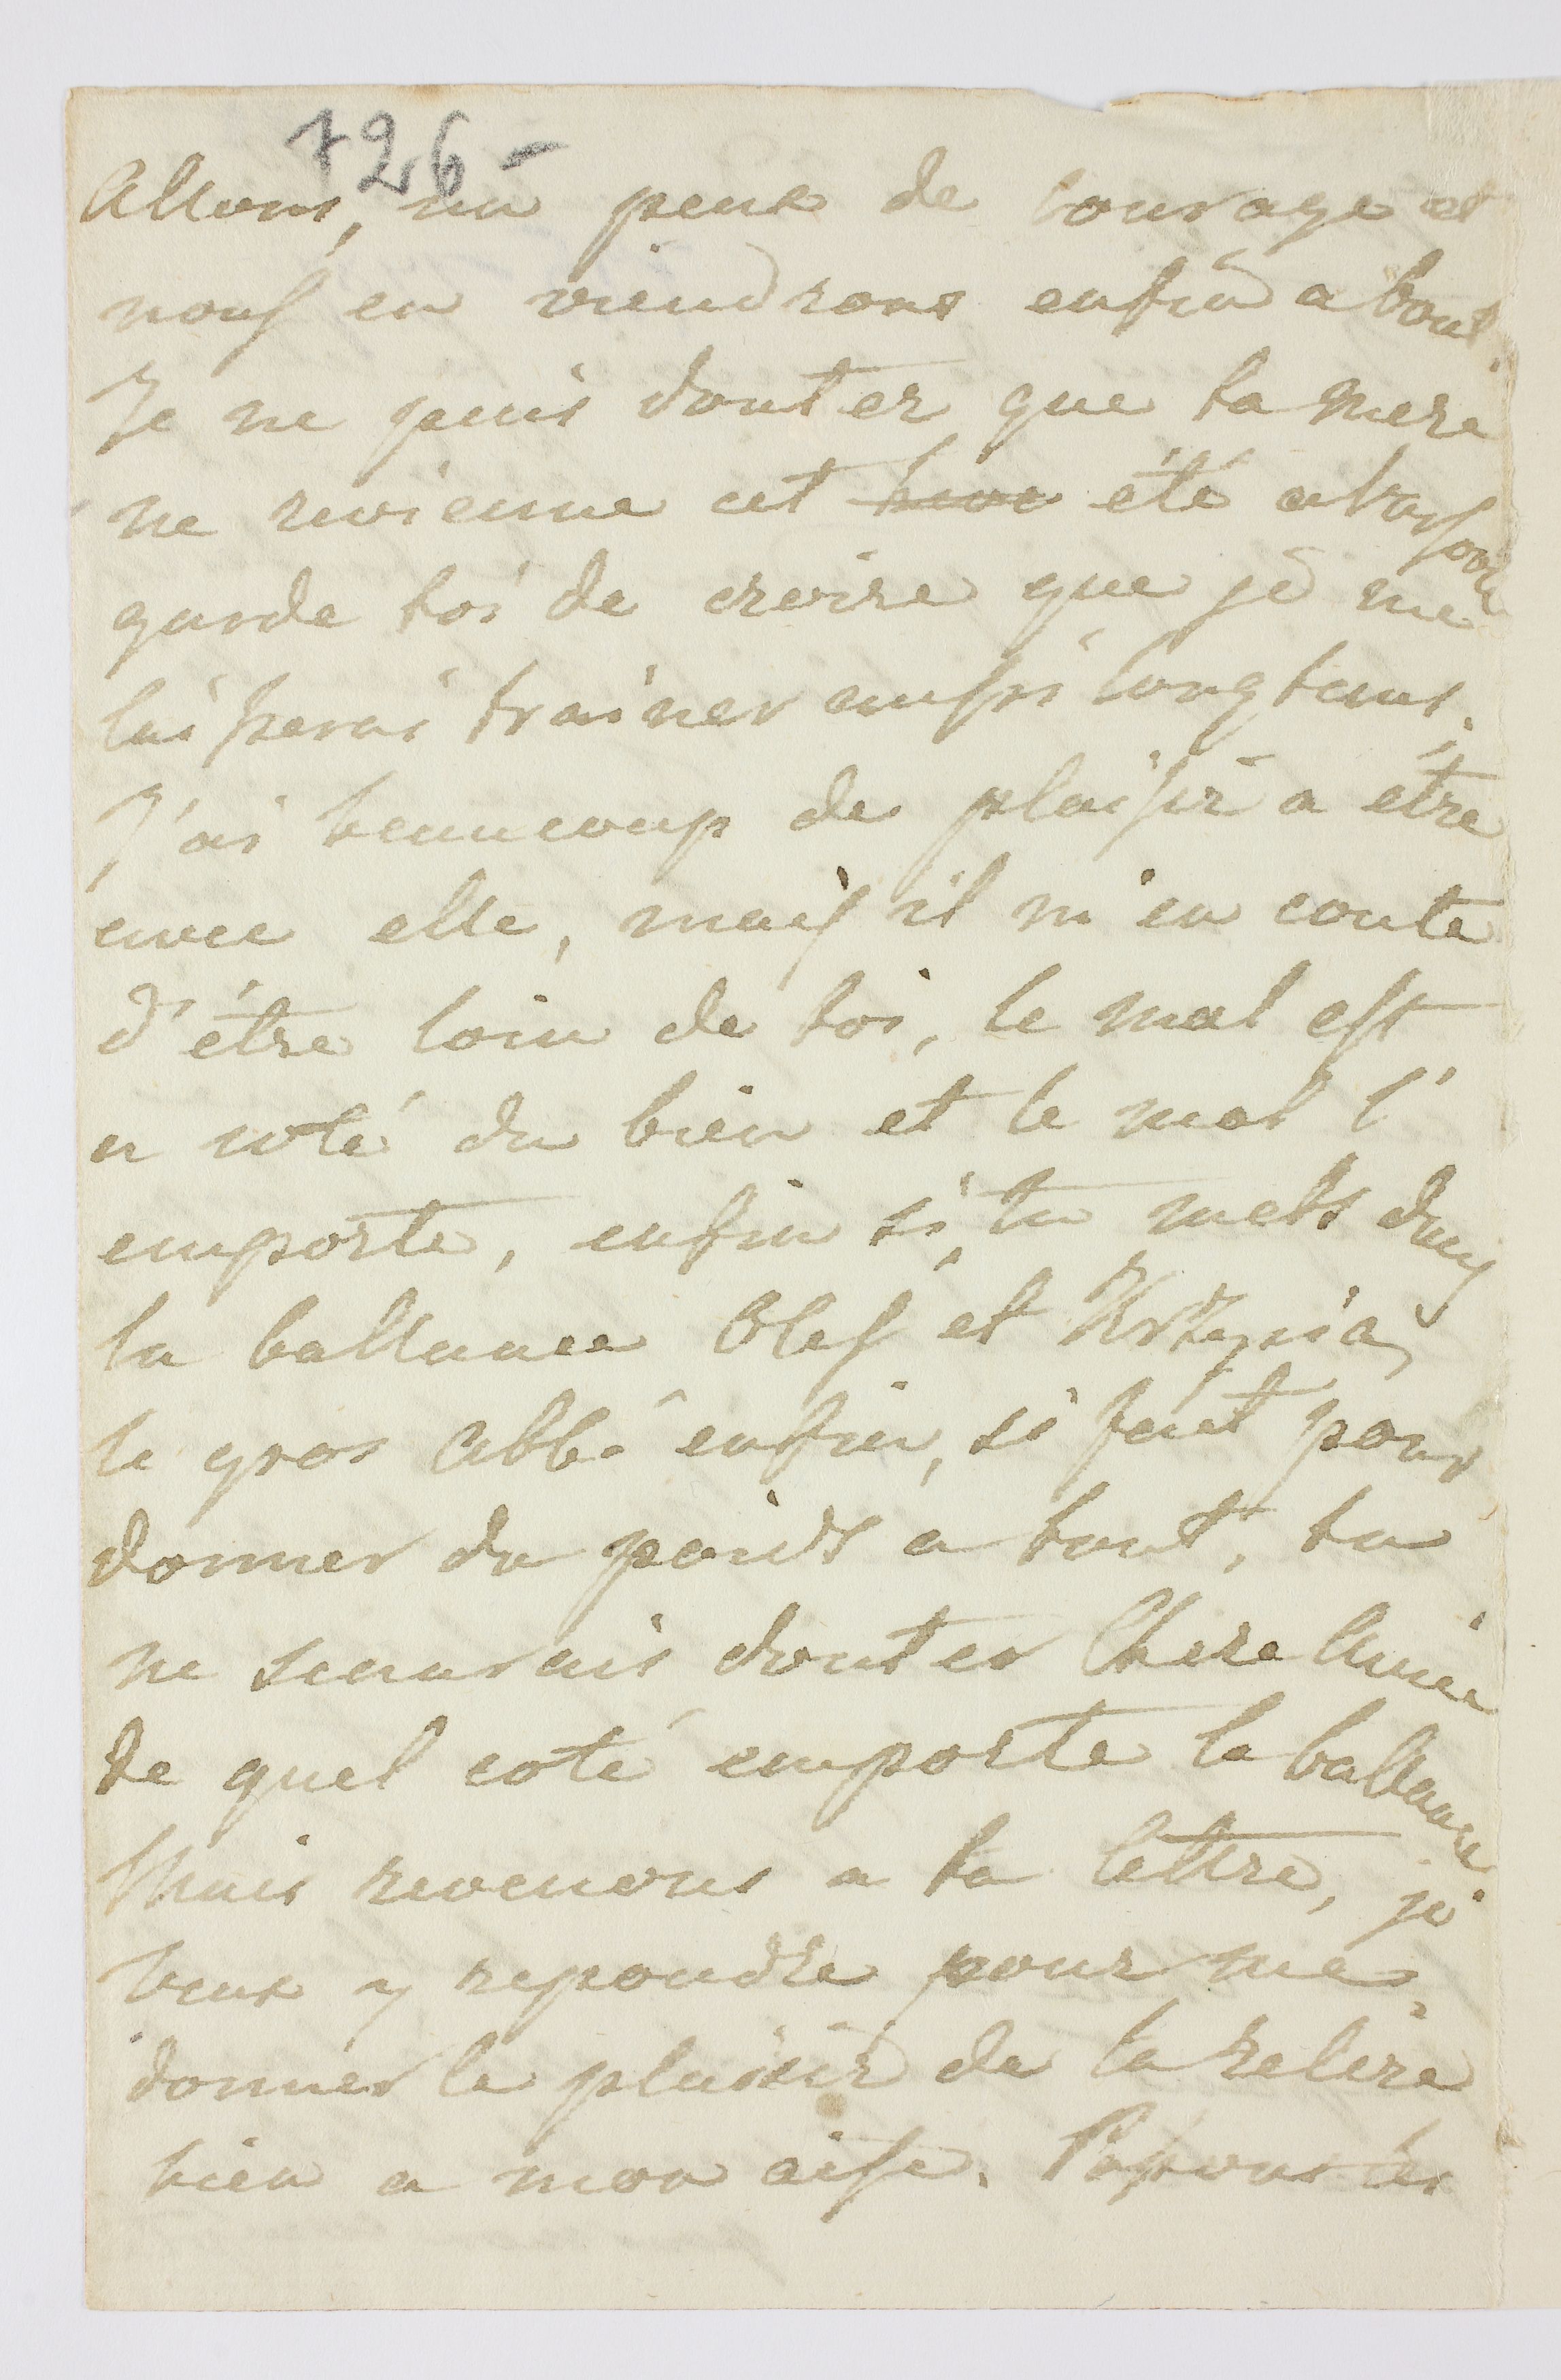 726 -
Allons, un peux de courage et
nous en viendrons enfin a bout.
Je ne puis douter que ta mere
ne revienne cet été a
garde toi de croire que je me
laisserai trainer aussi longtems.
J'ai beaucoup de plaisir a étre
avec elle, mais il m'en coute
d'étre loin de toi, le mal est
a coté du bien et le mal l'
emporte, enfin si tu mets dans
la ballance Olef et
le gros Abbé enfin, si fait pour
donner du poids a tout, tu
ne seaurais douter Chere Amie
de quel coté emporte la ballance
Mais revenons a ta lettre, je
veux y repondre pour me
donner le plaisir de la relire
bien a mon aise. les